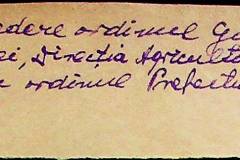 dere ordinul Gu
ei, Direcția Agricultu
ordinul Prefectu